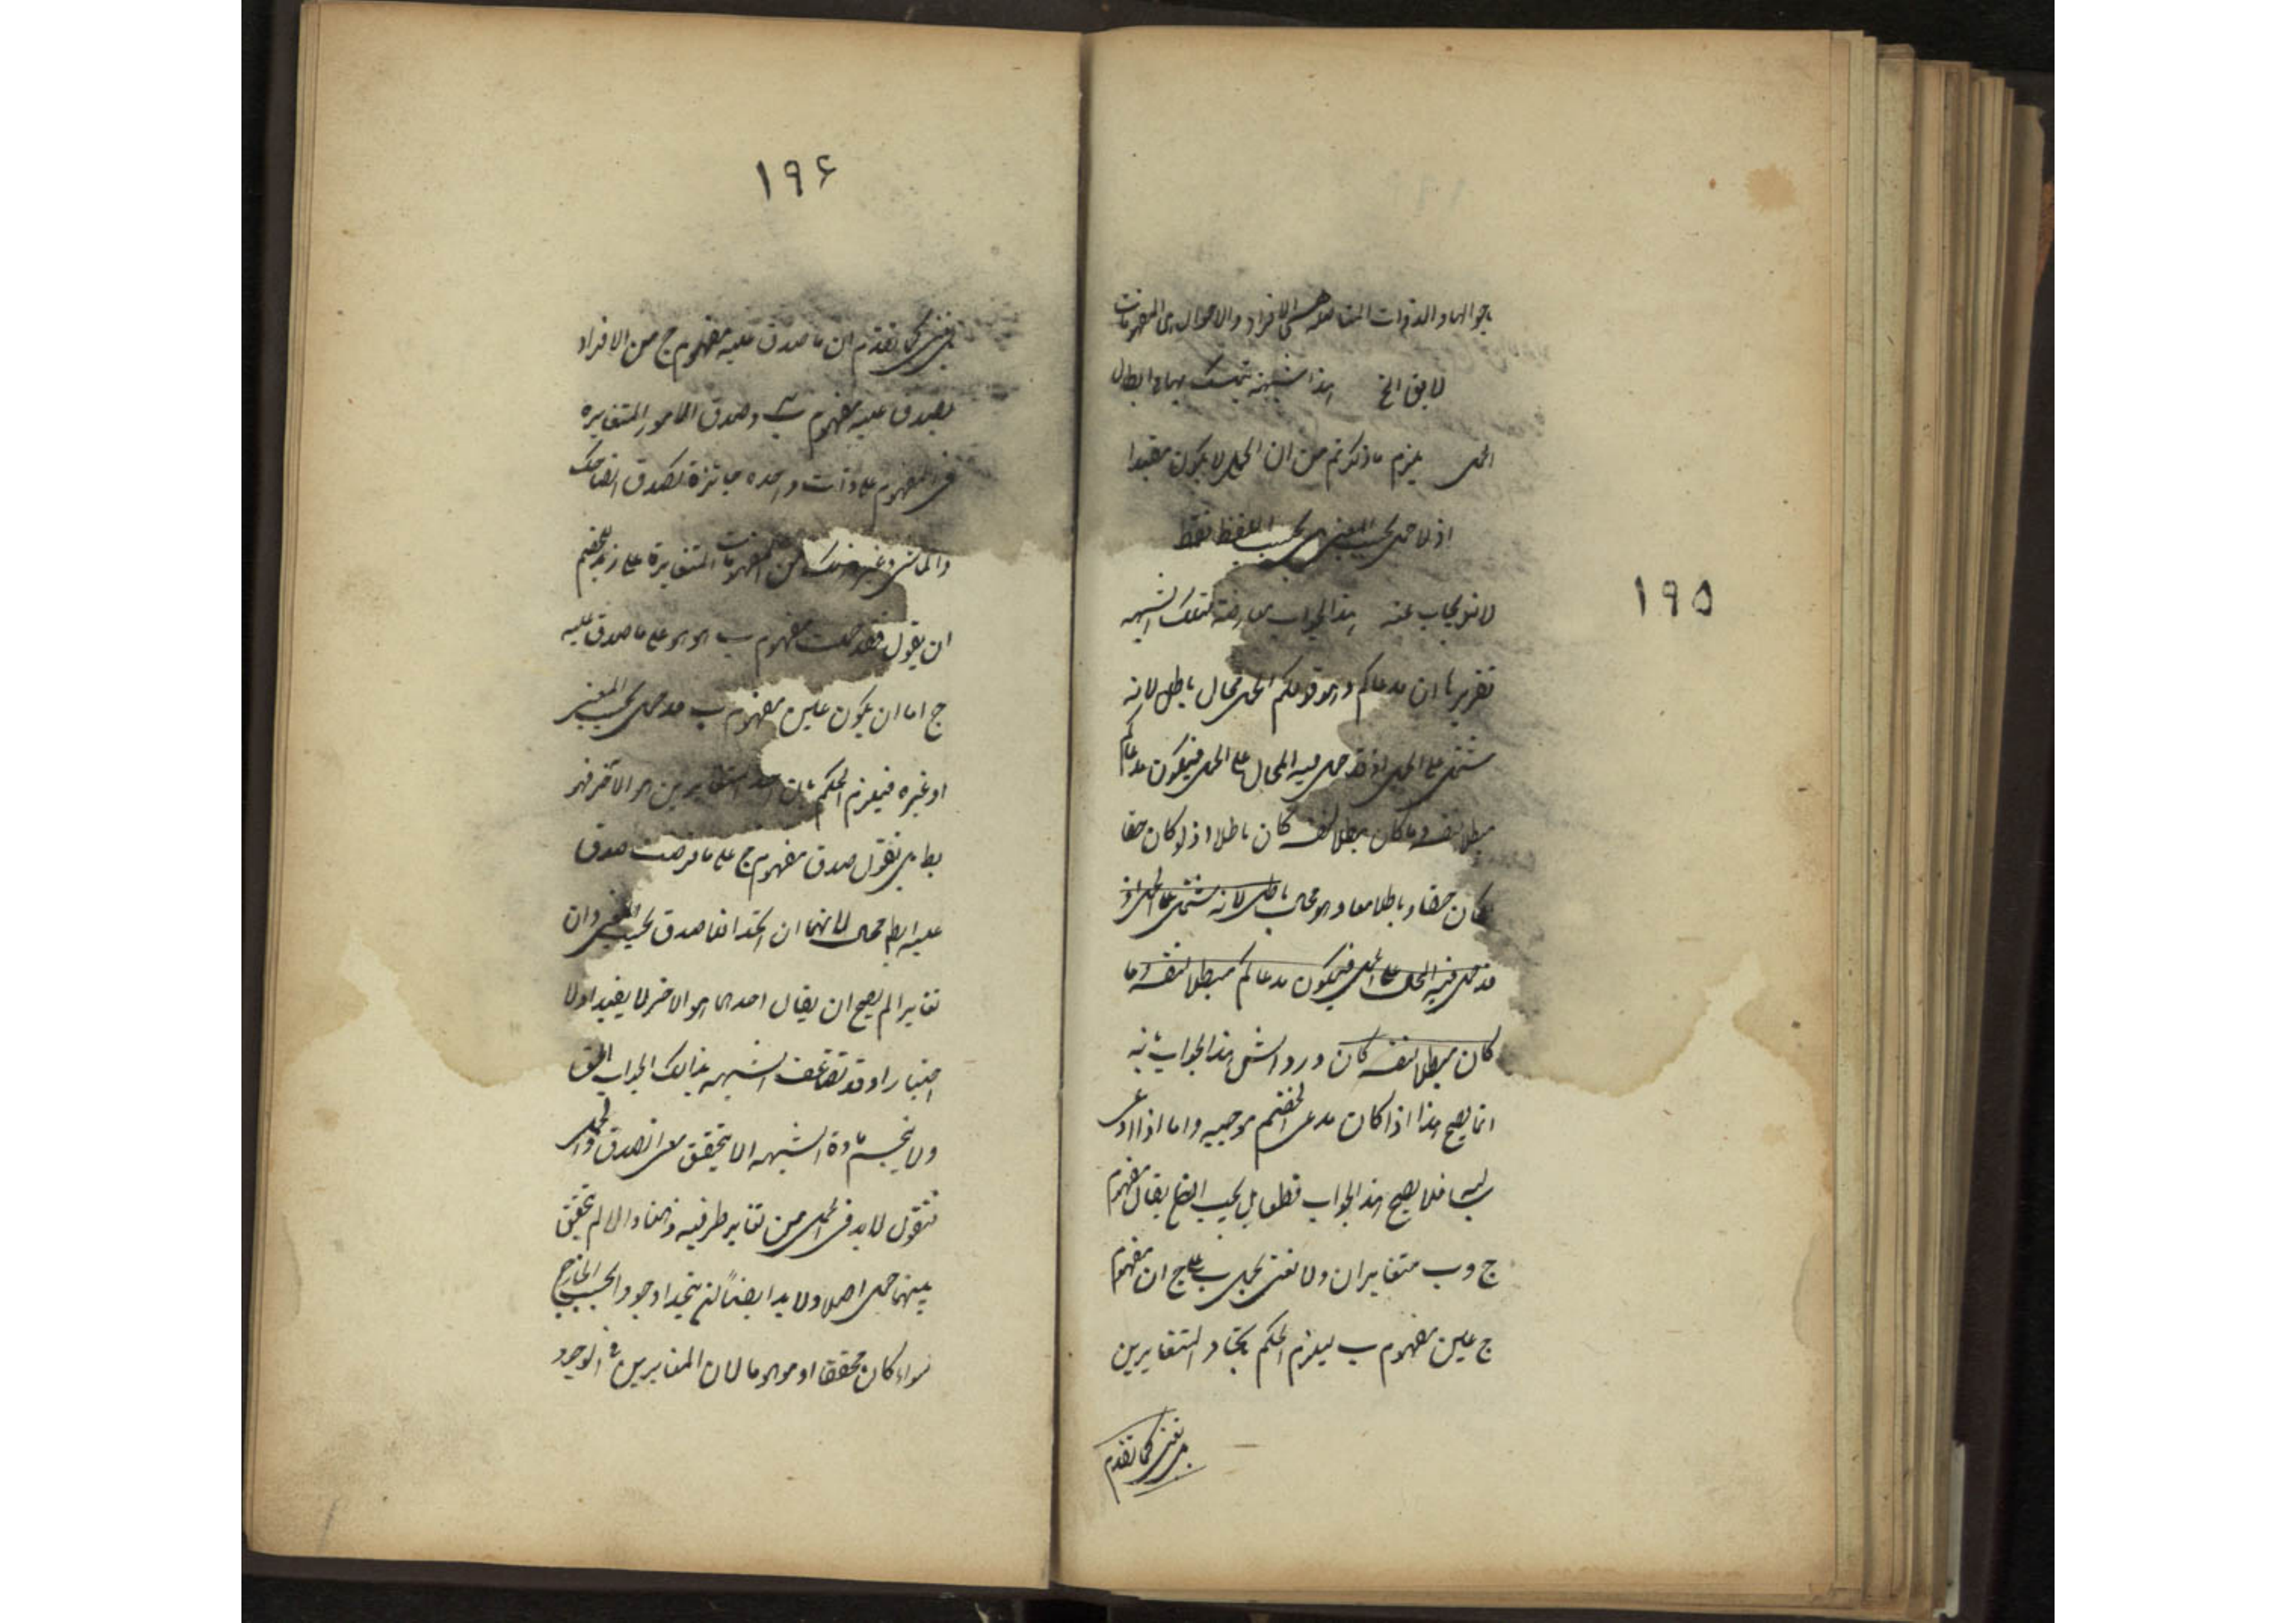 ۱۹۵
باحوالها والذوات المتأصلة هي الافراد والاحوال هي المفهومات
لا يق الخ هذا شبهة تمسك بها ابطال
الحمل يلزم ما ذكرتم من ان الحمل لا يكون مفيدا
اذ لا حمل بحسب المعنى بل بحسب اللفظ فقط
لانو يجاب عنه هذا الجواب معارضة لتلك الشبهه
تقريرها ان مدعاكم وهو قولكم الحمل محال باطل لانه
مشتمل على الحمل اذ قد حمل فيه المحال على الحمل فيكون مدعاكم
مبطلا لنفسه وما كان مبطلا لنفسه كان باطلا اذ لو كان حقا
لكان حقا وباطلا معا وهو محال باطل لانه مشتمل على الحمل اذ
قد حمل فيه المحال على الحمل فيكون مدعاكم مبطلا لنفسه وما
كان مبطلا لنفسه كان ورد الش هذا الجواب بانه
انما يصح هذا اذا كان مدعى الخصم موجبه واما اذا ادعى
سلبها فلا يصح هذا الجواب قطعا بل يجيب ايضا يقال مفهوم
ج وب متغايران ولا نعنى بحمل ب على ج ان مفهوم
ج عين مفهوم ب ليلزم الحكم باتحاد المتغايرين
بل نعنى كما تقدم
۱۹۶
بل نعنى كما تقدم ان ما صدق عليه مفهوم ج من الافراد
يصدق عليه مفهوم ب وصدق الامور المتغايره
فى المفهوم على ذات واحده جائزة لصدق الضاحك
والماشى وغير ذلك من المفهومات المتغايرة على زيد للخصم
ان يقول فقد حملت مفهوم ب هو هو على ما صدق عليه
ج اما ان يكون عين مفهوم ب فلا حمل بحسب المعنى
او غيره فيلزم الحكم بان احد المتغايرين هو الآخر فهو
بط بل نقول صدق مفهوم ج على ما فرضت صدق
عليه ايط محال لانهما ان اتحدا فلا صدق بحسب المعنى وان
تغايرا لم يصح ان يقال احدهما هو الاخر لا يفيد اولا
اختيارا وقد تضاعف الشبهه بذالك الجواب الحق
ولا ينحسم مادة الشبهه الا بتحقق معنى الصدق والحمل
فنقول لا بد فى الحمل من تغاير طرفيه ذهنا والا لم يتحقق
بينهما حمل اصلا ولا بد ايضاً ان يتحدا وجودا بحسب الخارج
سواء كان محققا او موهوما لان المتغايرين فى الوجود